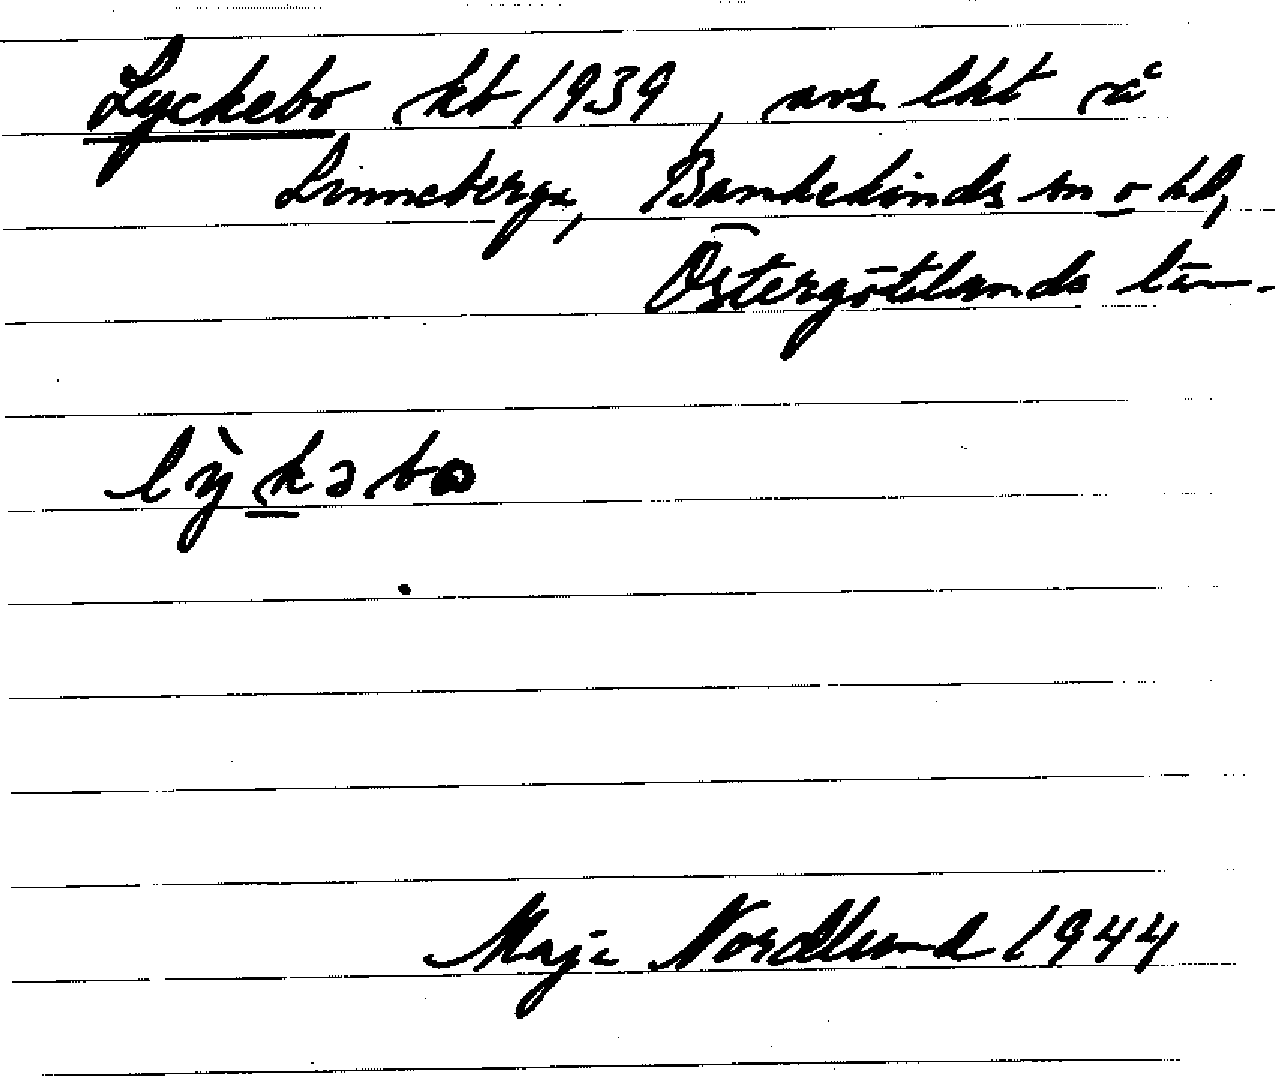 Lyckebo kb 1939, avs lht rå
Linneberga, Bankekinds sn o hd,
Östergötlands län.
lỳkəbo
Maja Nordlund 1944